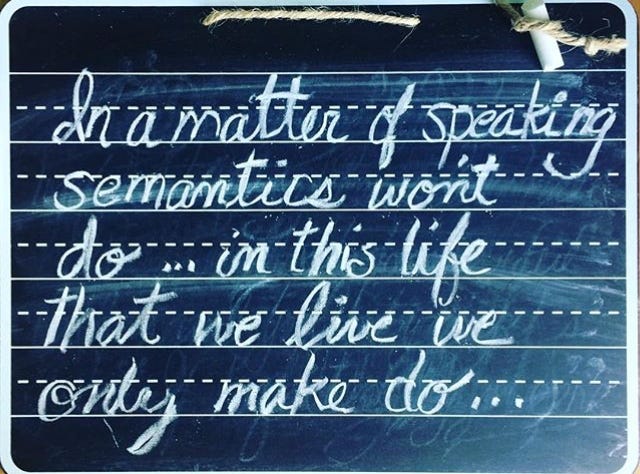 In a matter of speaking
semantics won't
do... in this life
that we live we
only make do...